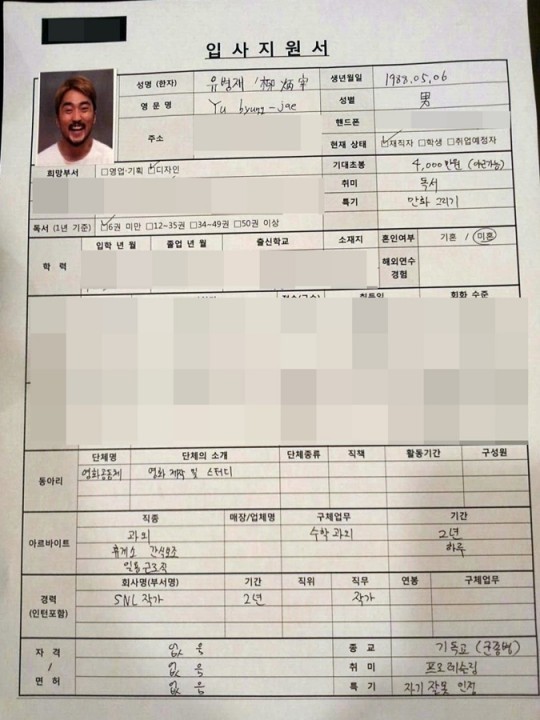 입사지원서
성명 (한자) 유병재 柳炳宰 생년월일 1988.05.06
영문명 Yu byung-jae 성별 男
주소 핸드폰
현재 상태 ☑재직자 □학생 □취업예정자
희망부서 □영업·기획 ☑디자인 기대초봉 4,000만원 (야근가능)
취미 독서
특기 만화 그리기
독서 (1년 기준) ☑6권 미만 □12~35권 □34~49권 □50권 이상
입학 년 월 졸업 년 월 출신학교 소재지 혼인여부 기혼 / 미혼
학력 해외연수 경험
회화 수준
단체명 단체의 소개 단체종류 직책 활동기간 구성원
동아리 영화공동체 영화 제작 및 스터디
직종 매장/업체명 구체업무 기간
아르바이트 과외 수학 과외 2년
휴게소 간식보조 하루
일용근로직
회사명(부서명) 기간 직위 직무 연봉 구체업무
경력 (인턴포함) SNL 작가 2년 작가
자격 / 면허 없음 종교 기독교 (군종병)
없음 취미 프로레슬링
없음 특기 자기 잘못 인정